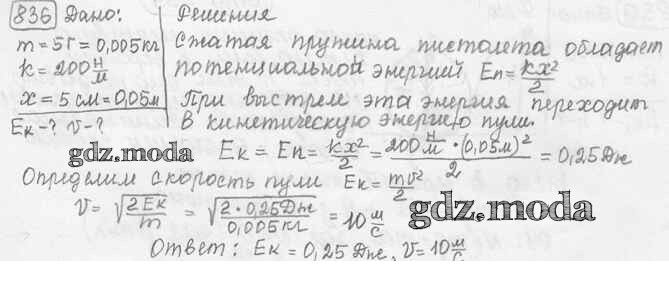 836 Дано: Решения
m = 5г = 0,005кг Сжатая пружина пистолета обладает
k = 200 Н/м потенциальной энергией Eп = kx²/2
x = 5 см = 0,05м При выстреле эта энергия переходит
Eк - ? v - ? в кинетическую энергию пули.
gdz.moda Eк = Eп = kx²/2 = 200 Н/м · (0,05м)²/2 = 0,25Дж
Определим скорость пули Eк = mv²/2
v = √(2Eк/m) = √(2 · 0,25Дж/0,005кг) = 10 м/с gdz.moda
Ответ: Eк = 0,25 Дж, v = 10 м/с